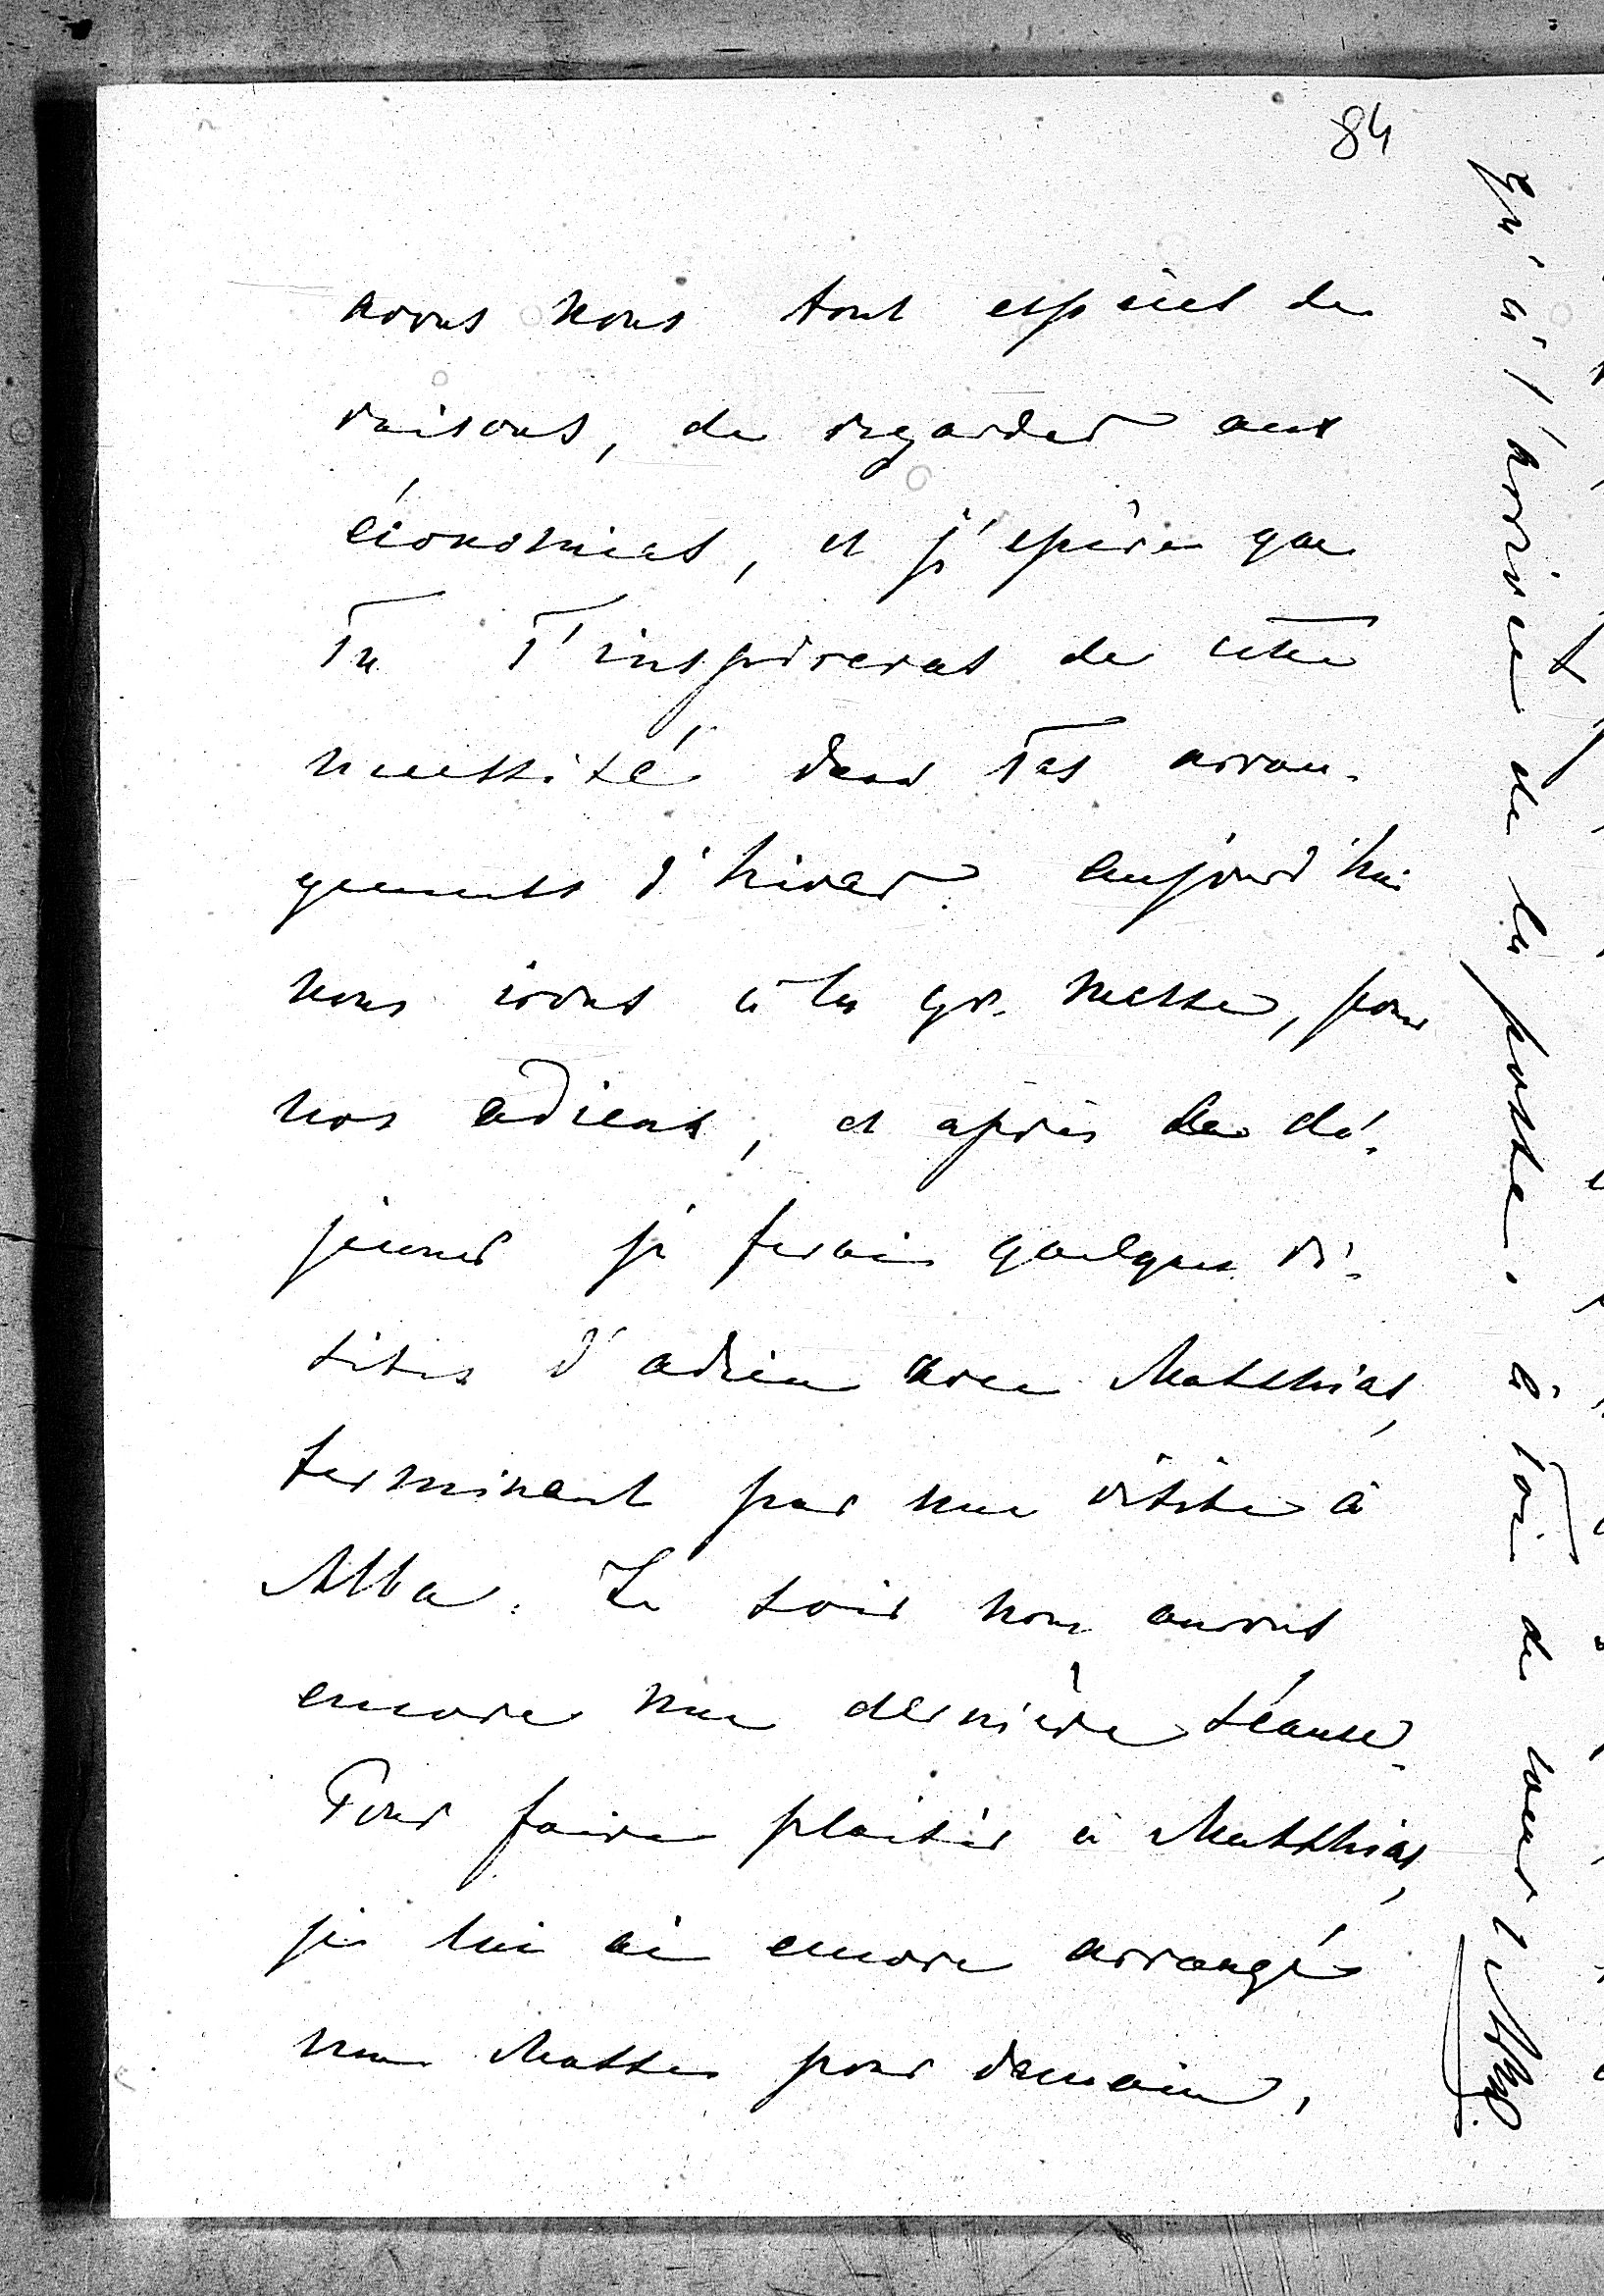 84
avons nous tout espèces de
raisons, de regarder aux
économies, et j'espère que
Tu T'inspireras de cette
necessité dans Tes arran-
gements d'hiver. Aujourd'hui
nous irons à la gr. messe, pour
nos adieux, et après le dé-
jeuner je ferai quelques vi-
sites d'adieu avec Matthias,
terminant par une visite à
Alba. Le soir nous aurons
encore une dernière séance.
Pour faire plaisir à Matthias,
je lui ai encore arrangé
une Masse pour demain,
qu'à l'arrivée de la poste. à Toi de coeur